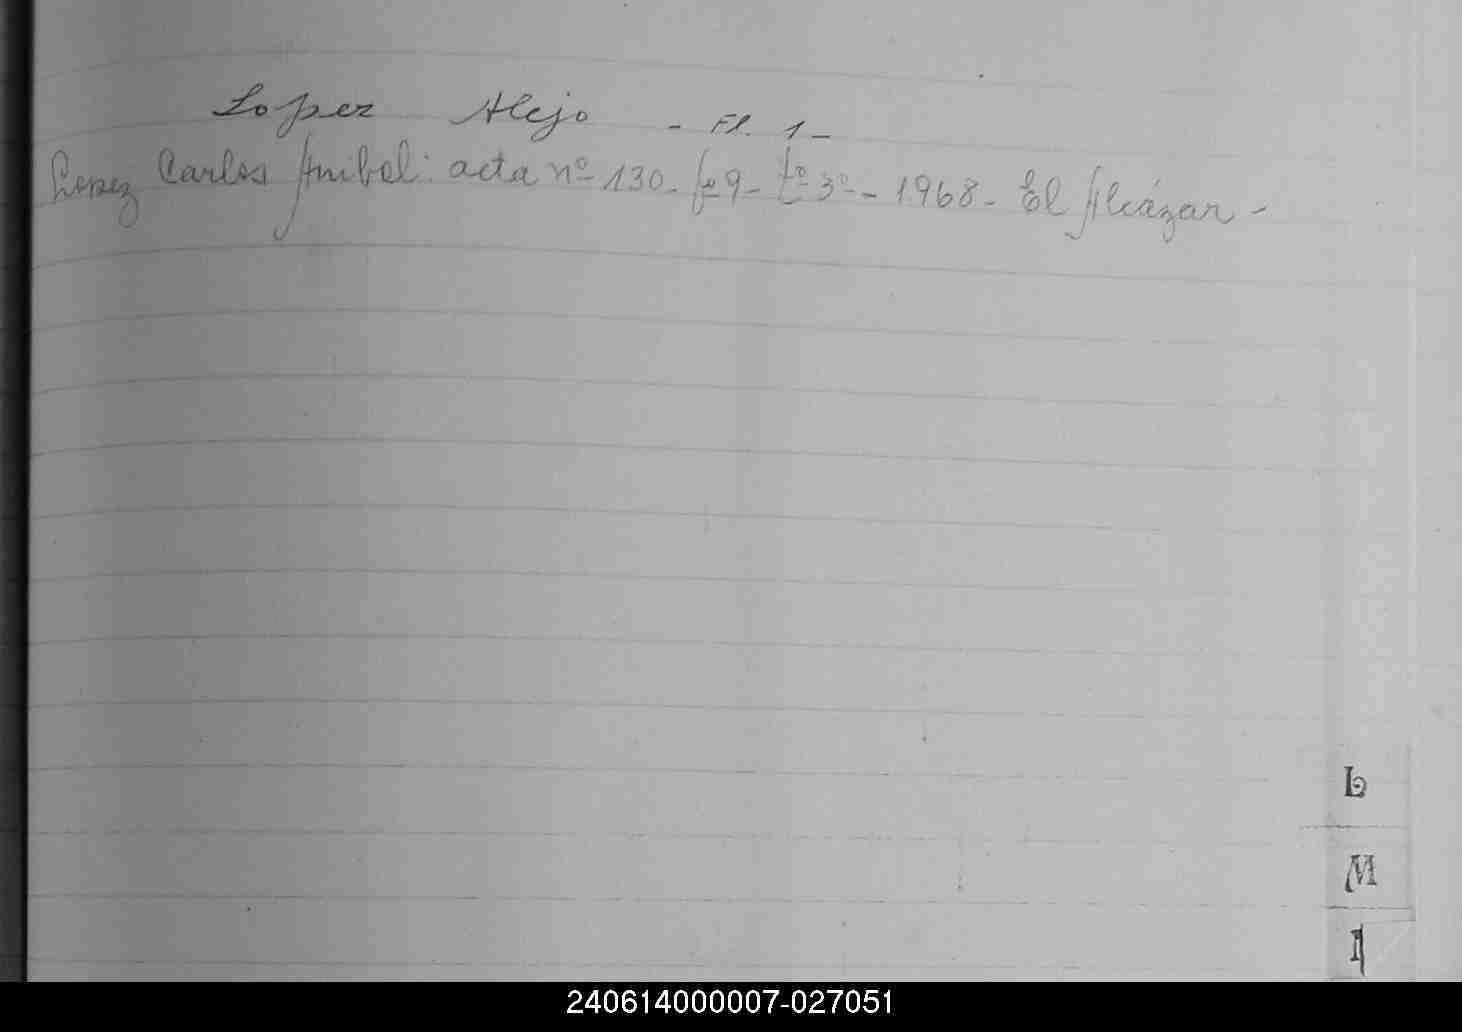 Lopez Alejo - Fl. 1 -
Lopez Carlos Anibal: acta nº 130 - fº 9 - tº 3º - 1968 - El Alcázar -
L
M
240614000007-027051